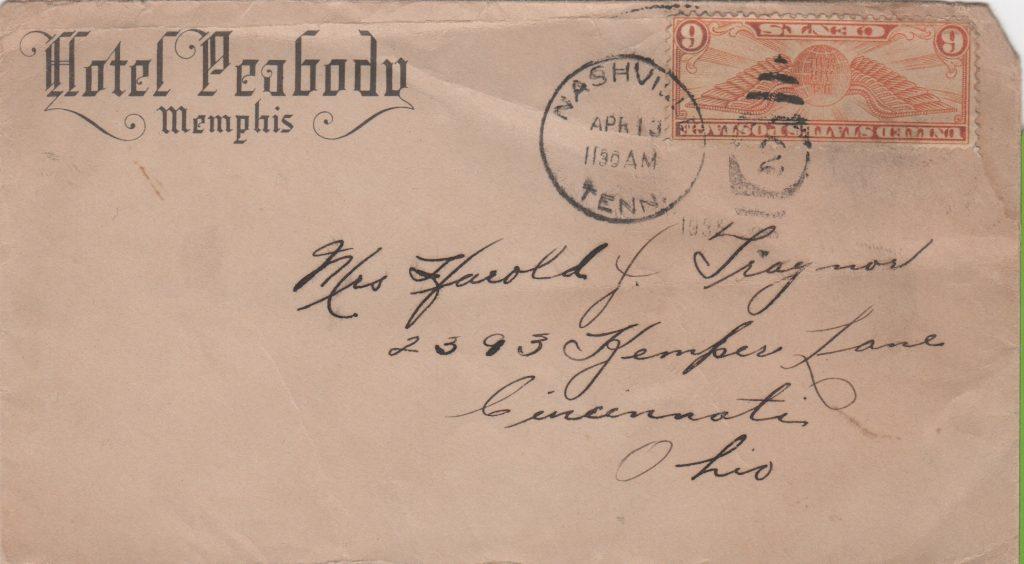 Hotel Peabody
Memphis
NASHVILLE
APR 13
11 30 AM
TENN.
UNITED STATES POSTAGE
6 CENTS 6
Mrs Harold J. Traynor
2393 Kemper Lane
Cincinnati
Ohio